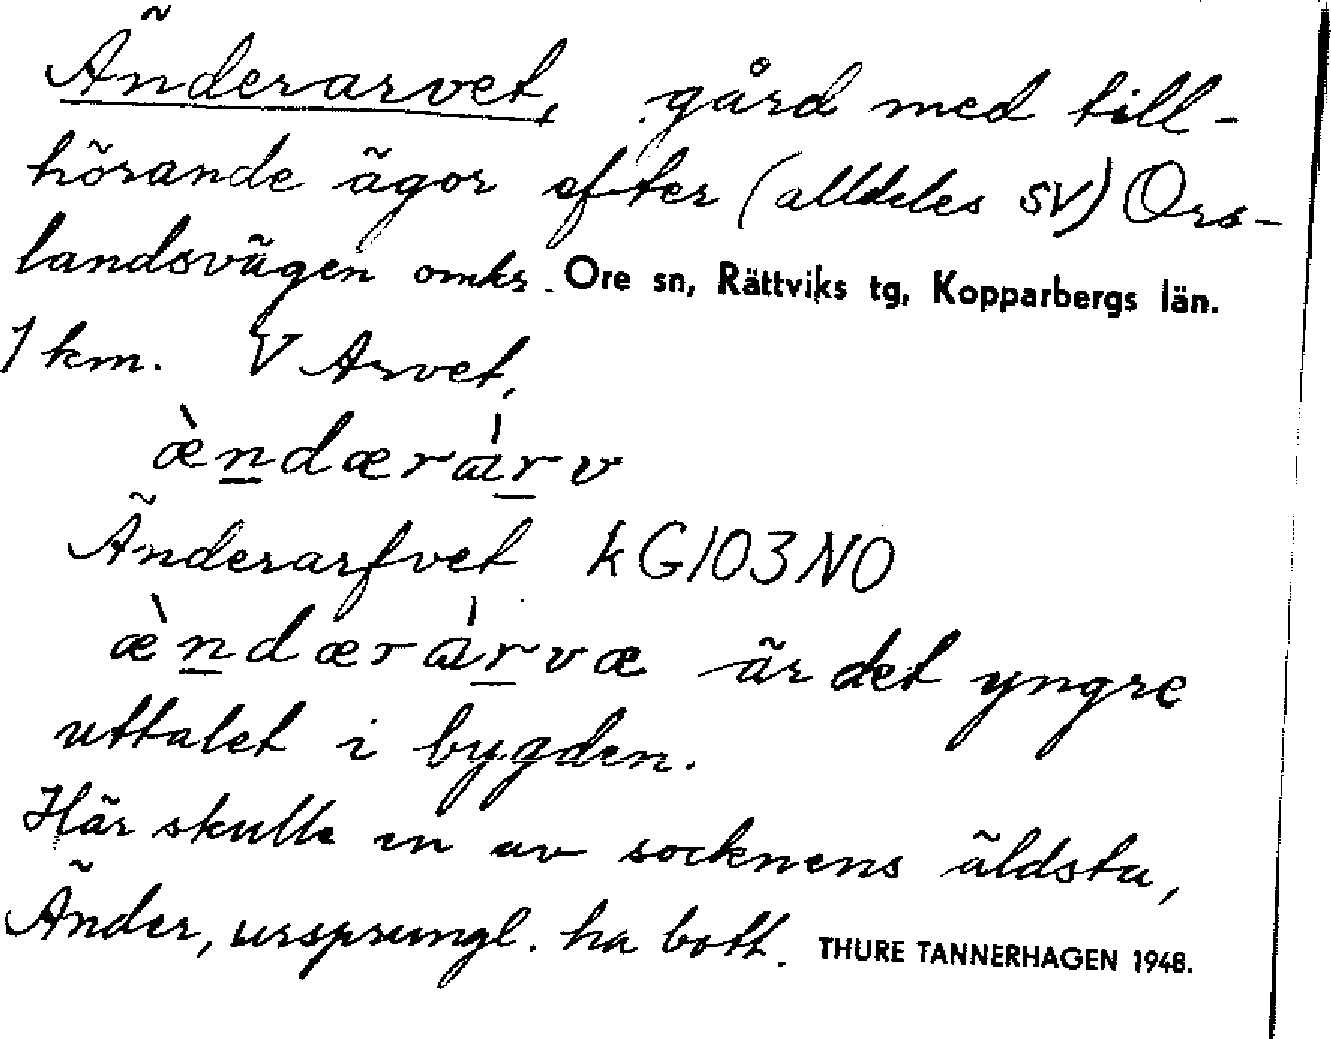 Änderarvet, gård med till-
hörande ägor efter (alldeles SV) Ors-
landsvägen omkr. Ore sn, Rättviks tg, Kopparbergs län.
1 km. V Arvet.
æ̀ndæra̍rv
Änderarfvet kG103NO
æ̀ndæra̍rvæ är det yngre
uttalet i bygden.
Här skulle en av socknens äldsta,
Änder, ursprungl. ha bott. THURE TANNERHAGEN 1948.